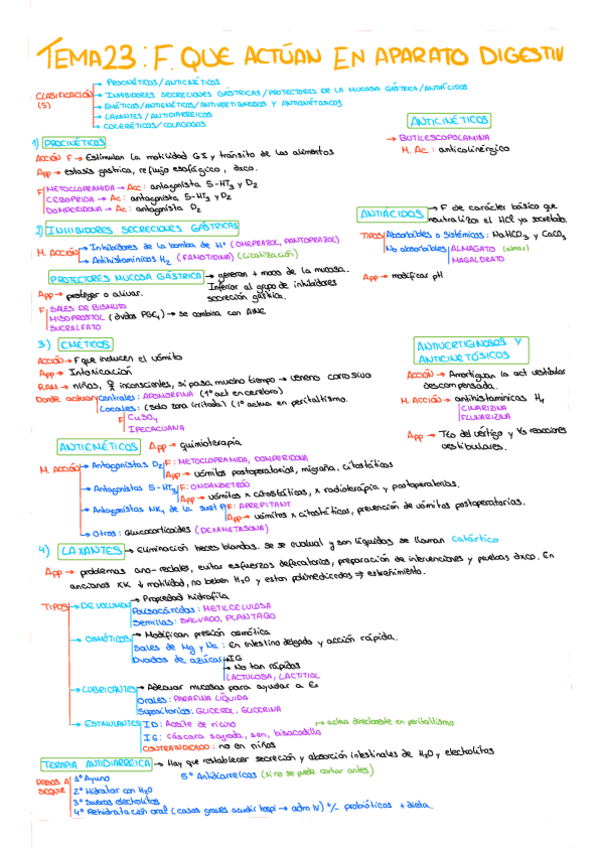 TEMA 23: F. QUE ACTÚAN EN APARATO DIGESTIV
CLASIFICACIÓN (5)
→ PROCINÉTICOS/ANTICINÉTICOS
→ INHIBIDORES SECRECIONES GÁSTRICAS/PROTECTORES DE LA MUCOSA GÁSTRICA/ANTIÁCIDOS
→ EMÉTICOS/ANTIEMÉTICOS/ANTIVERTIGINOSOS Y ANTICINÉTOSICOS
→ LAXANTES/ANTIDIARREICOS
→ COLERÉTICOS/COLAGOGOS
1) PROCINÉTICOS
ACCIÓN F → Estimulan la motilidad GI y tránsito de los alimentos
App → estasis gástrica, reflujo esofágico, dxco.
F METOCLOPRAMIDA → Acc: antagonista 5-HT3 y D2
CEBOPRIDA → Ac: antagonista 5-HT3 y D2
DOMPERIDONA → Ac: antagonista D2
ANTICINÉTICOS
→ BUTILESCOPOLAMINA
M. Ac: anticolinérgico
2) INHIBIDORES SECRECIONES GÁSTRICAS
M. ACCIÓN → Inhibidores de la bomba de H+ (OMEPRAZOL, PANTOPRAZOL)
→ Antihistamínicos H2 (FAMOTIDINA)
PROTECTORES MUCOSA GÁSTRICA → generan + moco de la mucosa.
Inferior al grupo de inhibidores
secreción gástrica.
App → proteger o aliviar.
F SALES DE BISMUTO
MISOPROSTOL → se combina con AINE
SUCRALFATO
ANTIÁCIDOS → F de carácter básico que
neutraliza el HCl ya secretado.
TIPOS Absorbibles o Sistémicos: NaHCO3 y CaCO3
No absorbibles ALMAGATO (almax)
MAGALDRATO
App → modificar pH
3) EMÉTICOS
ACCIÓN → F que inducen el vómito
App → Intoxicación
RAM → niños, inconscientes, si pasa mucho tiempo → veneno corrosivo
Donde actúan centrales: APOMORFINA (1º act en cerebro)
Locales: (solo zona irritada) (1º actua en peristaltismo.
F CuSO4
IPECACUANA
ANTIVERTIGINOSOS Y
ANTICINETÓSICOS
ACCIÓN → Amortiguan la act vestibular
descompensada.
M. ACCIÓN → antihistamínicos H1
CINARIZINA
FLUNARIZINA
App → Tto del vértigo y reacciones
vestibulares.
ANTIEMÉTICOS App → quimioterapia
M. ACCIÓN → Antagonistas D2 F: METOCLOPRAMIDA, DOMPERIDONA
App → vómitos postoperatorios, migraña, citostáticos
→ Antagonistas 5-HT3 F: ONDANSETRÓN
App → vómitos x citostáticos, x radioterapia y postoperatorios.
→ Antagonistas NK1 de la sust P F: APREPITANT
App → vómitos x citostáticos, prevención de vómitos postoperatorios.
→ Otros: Glucocorticoides (DEXAMETASONA)
4) LAXANTES → eliminación heces blandas. Si se evalual y son líquidas se llaman Catártico
App → problemas ano-rectales, evitar esfuerzos defecatorios, preparación de intervenciones y pruebas dxco. En
ancianos ↓ motilidad, no beben H2O y estan polimedicados → estreñimiento.
TIPOS → DE VOLUMEN → Propiedad hidrófila
Polisacáridos: METILCELULOSA
Semillas: SALVADO, PLANTAGO
→ OSMÓTICOS → Modifican presión osmótica
Sales de Mg y Na: En intestino delgado y acción rápida.
Dvados de azúcar → IG
→ No tan rápidos
LACTULOSA, LACTITIOL
→ LUBRICANTES → Adecuar mucosas para ayudar a Ex
Orales: PARAFINA LÍQUIDA
Supositorios: GLICEROL, GLICERINA
→ ESTIMULANTES ID: Aceite de ricino → actua directamente en peristaltismo
IG: Cáscara sagrada, sen, bisacodilo
CONTRAINDICADO: no en niños
TERAPIA ANTIDIARREICA → Hay que restablecer secreción y absorción intestinales de H2O y electrolitos
PASOS A SEGUIR
1º Ayuno
5º Antidiarreicos (si no se puede cortar antes)
2º Hidratar con H2O
3º Sueros electrolitos
4º Rehidratación oral (casos graves acudir hospi → adm IV) +/- probióticos + dieta.